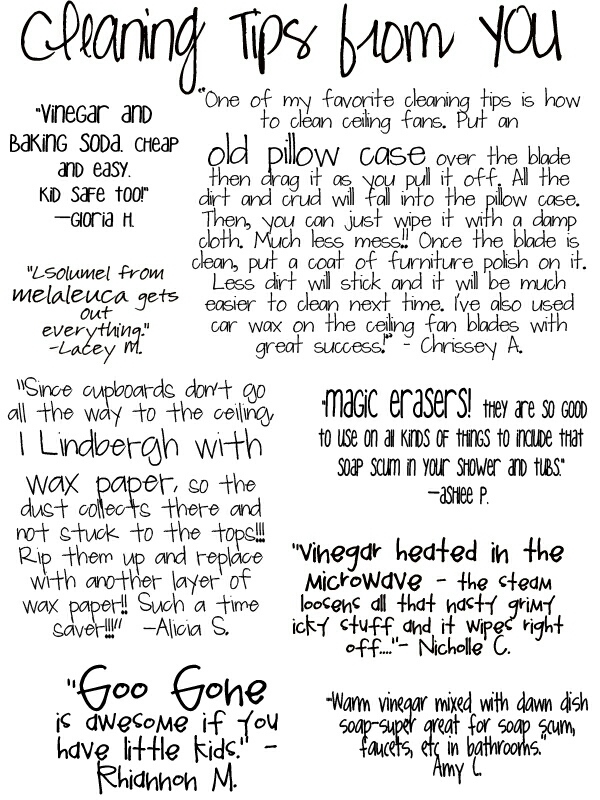 Cleaning Tips from You
"Vinegar and
Baking Soda. Cheap
and easy.
Kid safe too!"
—Gloria H.
"One of my favorite cleaning tips is how
to clean ceiling fans. Put an
old pillow case over the blade
then drag it as you pull it off. All the
dirt and crud will fall into the pillow case.
Then, you can just wipe it with a damp
cloth. Much less mess!! Once the blade is
clean, put a coat of furniture polish on it.
Less dirt will stick and it will be much
easier to clean next time. I've also used
car wax on the ceiling fan blades with
great success!" - Chrissey A.
"LSolumel from
melaleuca gets
out
everything."
-Lacey M.
"Since cupboards don't go
all the way to the ceiling,
I Lindbergh with
wax paper, so the
dust collects there and
not stuck to the tops!!!
Rip them up and replace
with another layer of
wax paper!! Such a time
saver!!!" —Alicia S.
"Magic erasers! They are so good
to use on all kinds of things to include that
soap scum in your shower and tubs."
—Ashlee P.
"Vinegar heated in the
microwave - the steam
loosens all that nasty grimy
icky stuff and it wipes right
off...."- Nicholle C.
"Goo Gone
is awesome if you
have little kids." -
Rhiannon M.
"Warm vinegar mixed with dawn dish
soap-super great for soap scum,
faucets, etc in bathrooms."
Amy L.